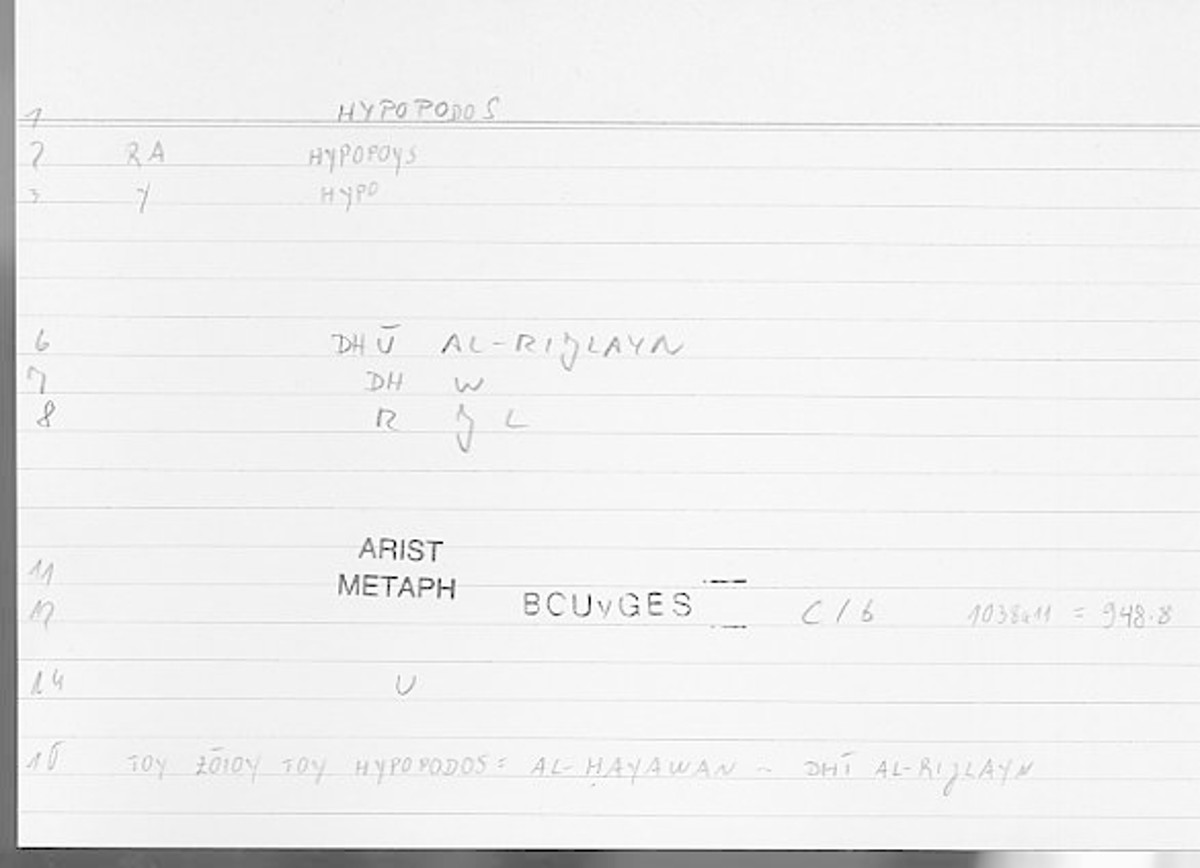 1 HYPOPODOS
2 RA HYPOPOYS
3 Y HYPO
6 DHŪ AL-RIJLAYN
7 DH W
8 R J L
11 ARIST
METAPH
12 BCUvGES C/6 1038a11 = 948.8
14 U
15 TOY ZŌIOY TOY HYPOPODOS = AL-ḤAYAWAN ~ DHĪ AL-RIJLAYN